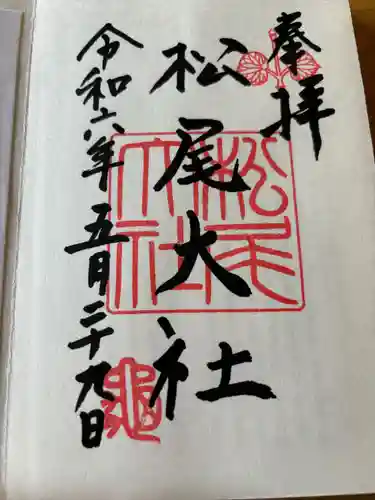 奉拝
松尾大社
令和六年五月二十九日
松尾大社